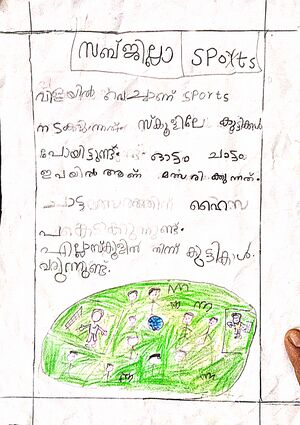 സബ്ജില്ലാ SPorts
വിളയിൽ വെച്ചാണ് SPorts
നടക്കുന്നത്. സ്കൂളിലെ കുട്ടികൾ
പോയിട്ടുണ്ട്. ഓട്ടം ചാട്ടം
ഇവയിൽ ആണ് മത്സരിക്കുന്നത്.
ഹൈസ
പങ്കെടുക്കുന്നുണ്ട്.
എല്ലാസ്കൂളിൽ നിന്ന് കുട്ടികൾ.
വരുന്നുണ്ട്.